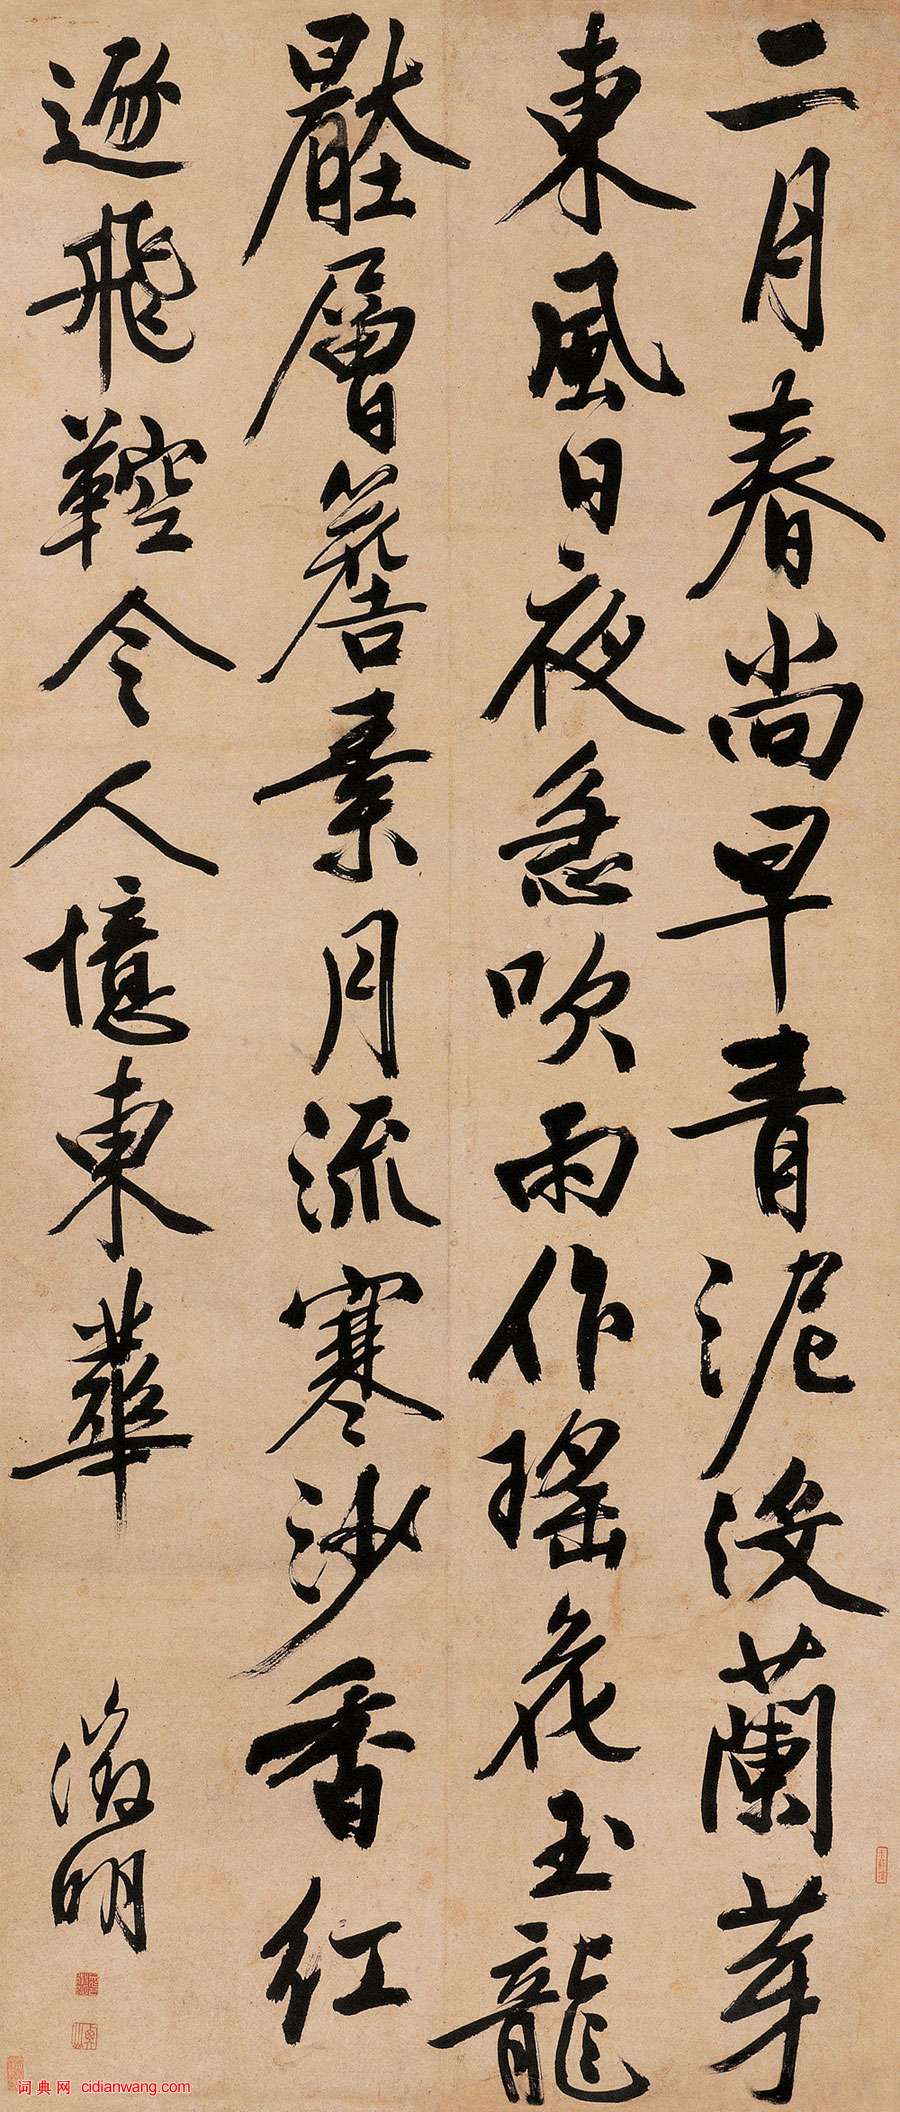 二月春尚早青泥没蘭芽
東風日夜急吹雨作瑤花玉龍
壓層簷素月流寒沙香紅
逐飛鞚令人憶東華
徵明
词典网 cidianwang.com